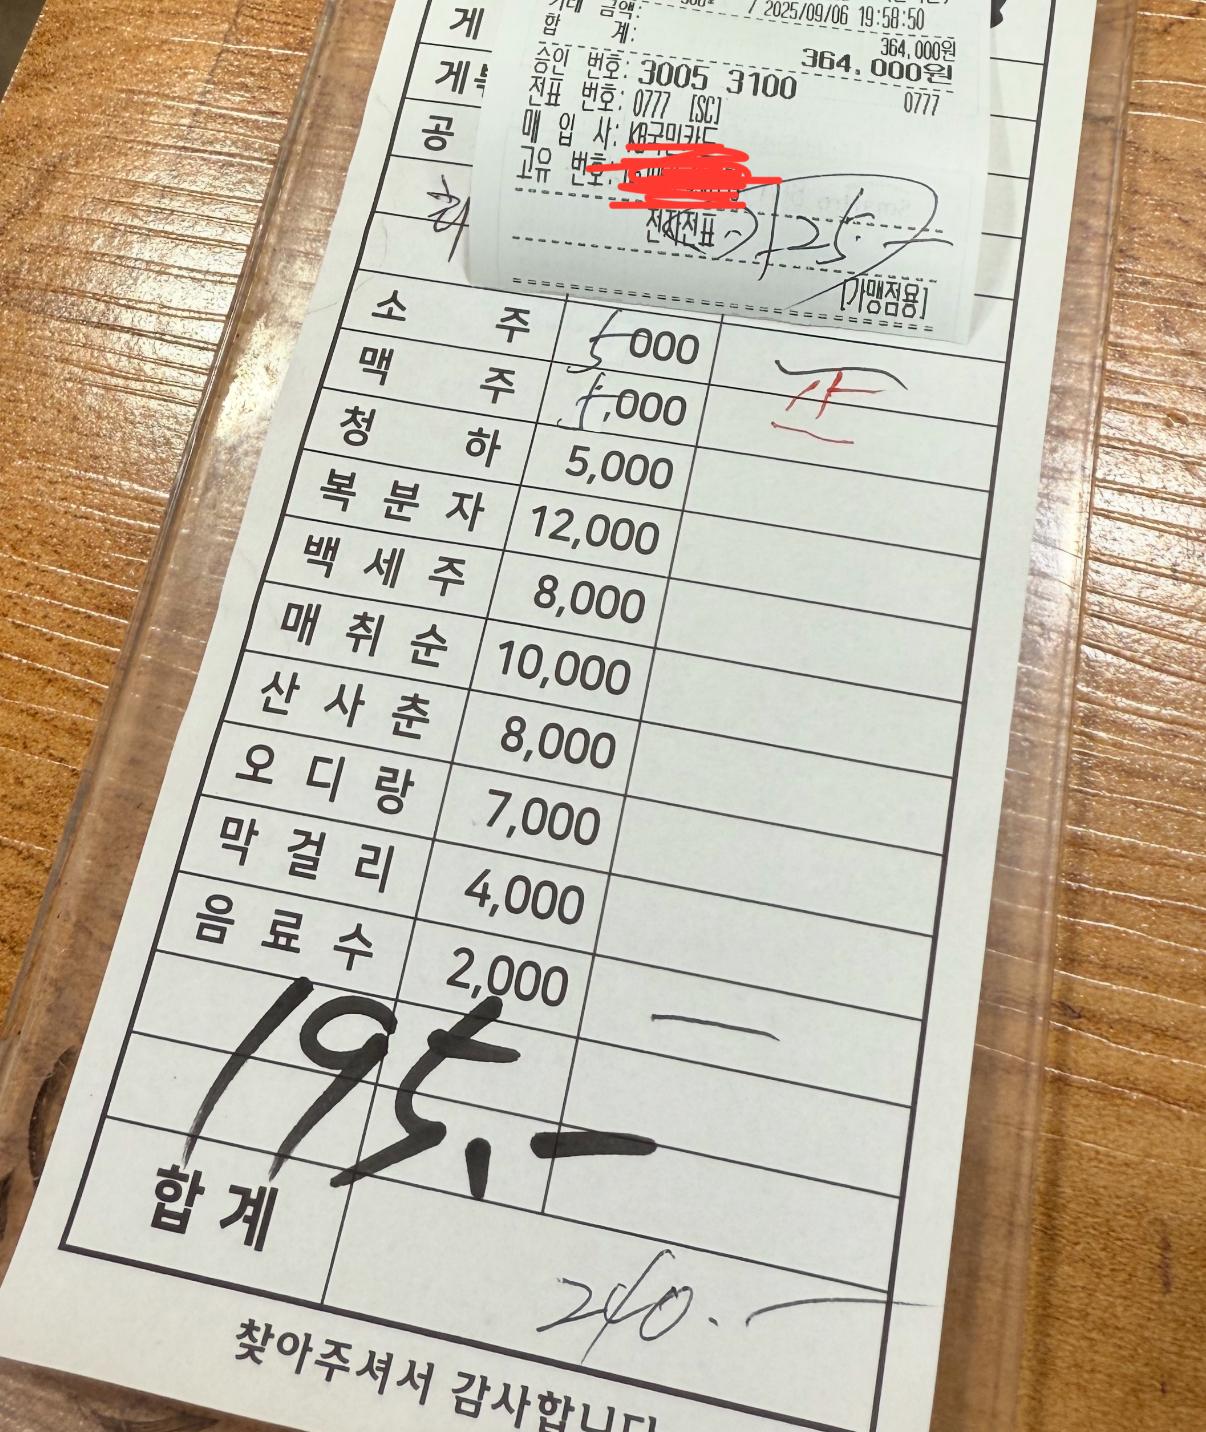 / 2025/09/06 19:58:50
금액: 364,000원
합 계: 364,000원
승인 번호: 3005 3100
전표 번호: 0777 [SC] 0777
매 입 사: KB국민카드
고유 번호:
전자전표
125.-
[가맹점용]
게
게
공
소 주 5000
맥 주 5,000
청 하 5,000
복 분 자 12,000
백 세 주 8,000
매 취 순 10,000
산 사 춘 8,000
오 디 랑 7,000
막 걸 리 4,000
음 료 수 2,000 一
195.-
합 계 240.-
찾아주셔서 감사합니다